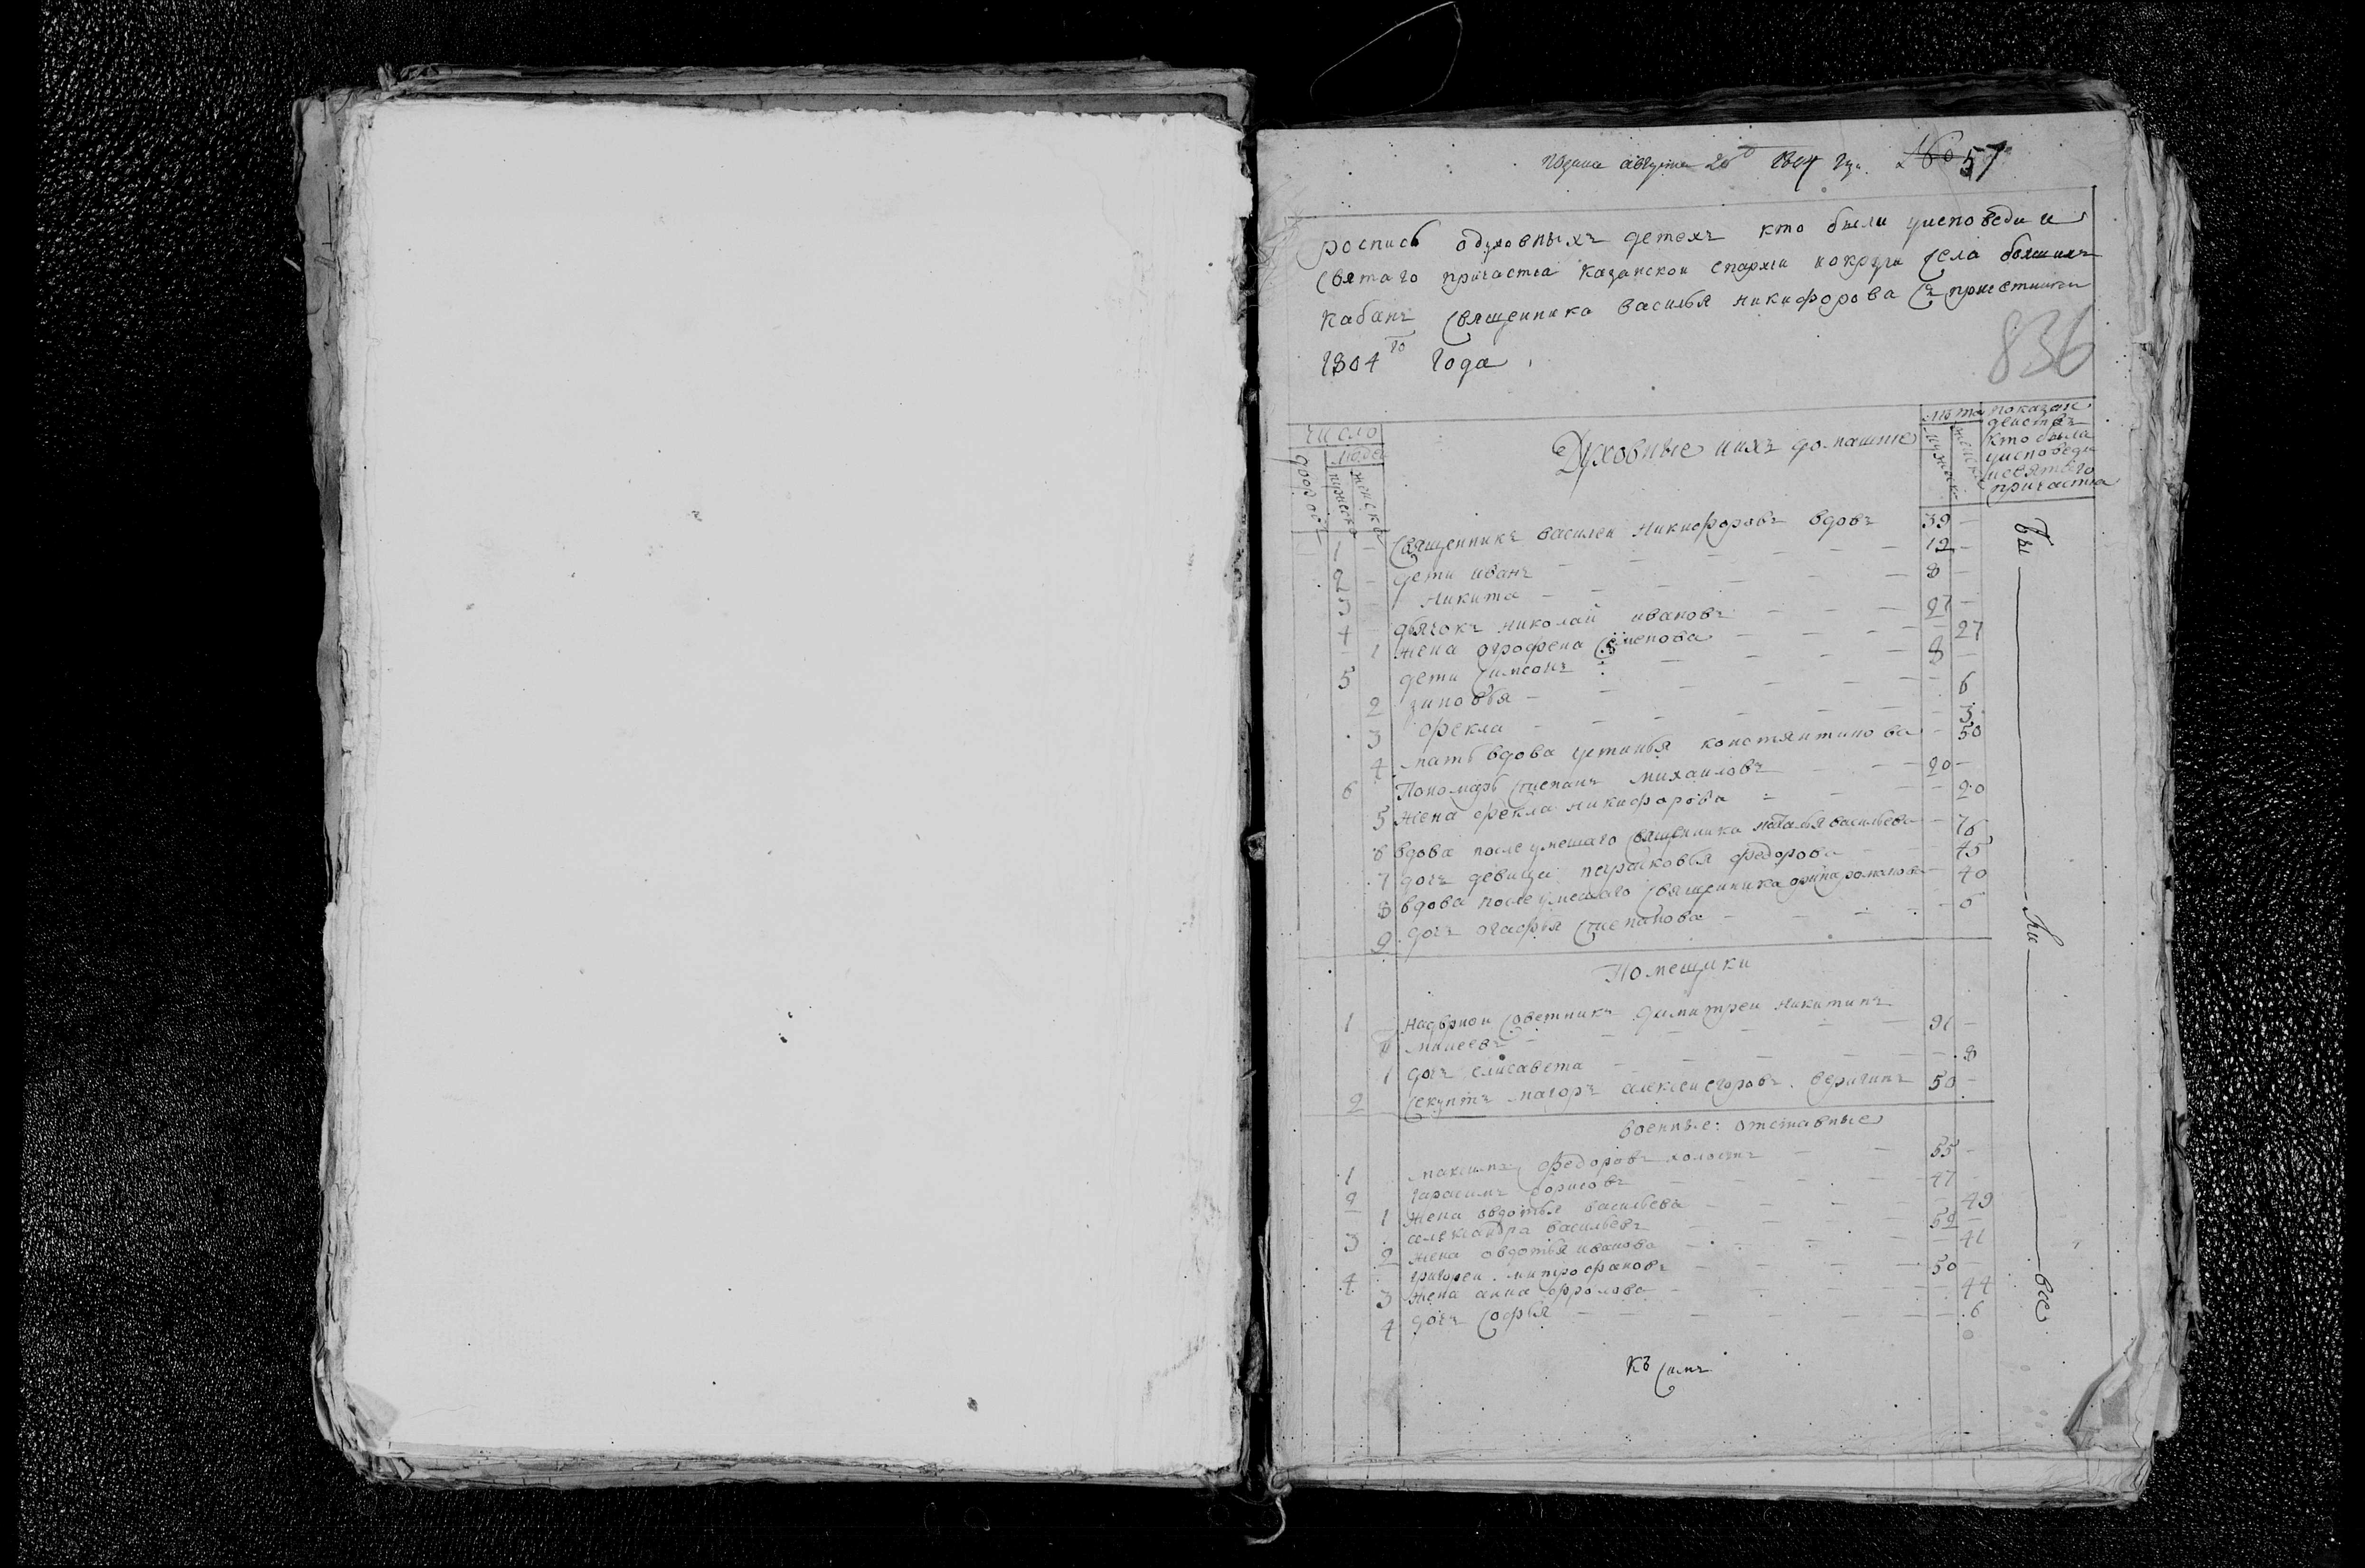 августа 20 1804 № 57
роспись одуховныхъ детехъ кто были уисповеди и
святаго причастиа казанскои епархи иокруги села болшихъ
кабанъ священника василья никифорова съ
1804 го года
836
число
людеи
мужеска
женска
Духовные иихъ домашние
лета
показан
кто была
уисповеди
исвятаго
причастиа
1 – священникъ василеи никифоровъ вдовъ 39 –
2 – дети иванъ 12 –
3 – никита 8 –
4 – дьячокъ николаи ивановъ 27 –
– 1 жена огрофена семенова – 27
5 дети симеонъ 8 –
2 зиновья – 6
3 фекла – 3
4 мать вдова устинья констянтинова – 50
6 Пономарь степанъ михаиловъ 20 –
5 жена фекла никифорова – 20
6 вдова после умешаго священника наталья васильева – 76
7 дочь девица парасковья федорова – 45
8 вдова после умешаго священника орина романова – 40
9 дочь огафья степанова – 5
Помещики
1 надворнои советникъ димитреи никитинъ
31 –
1 дочь елисавета – 8
2 секунтъ маиоръ алексеи егоровъ веригинъ 50 –
военные: отставные
1 максимъ федоровъ холостъ 55 –
2 гарасимъ борисовъ 47 –
1 жена овдотья васильева – 49
3 александра васильевъ 52 –
2 жена овдотья иванова – 41
4 григореи митрофановъ 50 –
3 жена анна фролова – 44
4 дочь софья – 6
къ симъ
Бы — ли — все